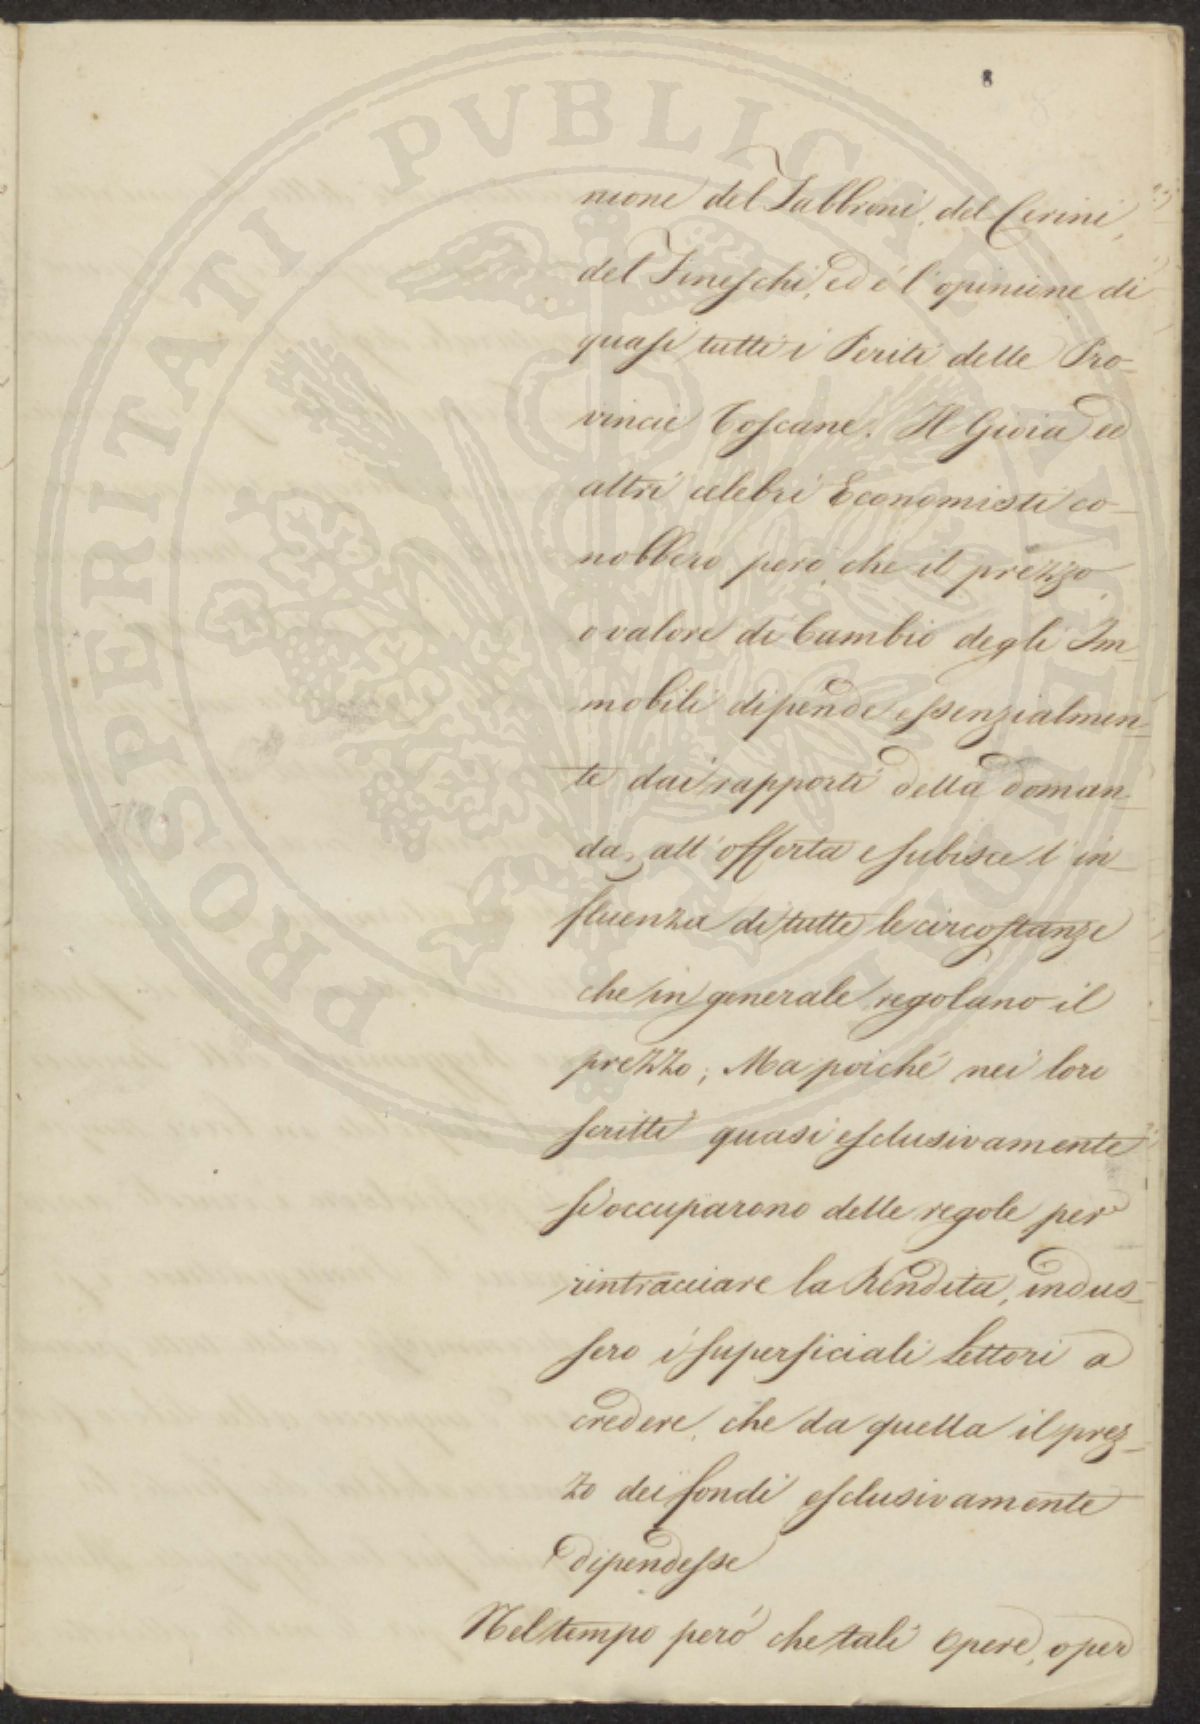 8
nione del Fabbroni, del Cerini,
del Fineschi, ed è l'opinione di
quasi tutti i Periti delle Pro-
vincie Toscane. Il Gioia ed
altri celebri Economisti co-
nobbero però, che il prezzo,
o valore di Cambio degli Im-
mobili dipende essenzialmen-
te dai rapporti della doman-
da, all'offerta e subisce l'in-
fluenza di tutte le circostanze
che in generale regolano il
prezzo; Ma poiché nei loro
scritti quasi esclusivamente
si occuparono delle regole per
rintracciare la Rendita, indus-
sero i superficiali Lettori a
credere, che da quella il prez-
zo dei fondi esclusivamente
dipendesse
Nel tempo però che tali Opere, o per
PROSPERITATI PVBLICAE AVGENDAE